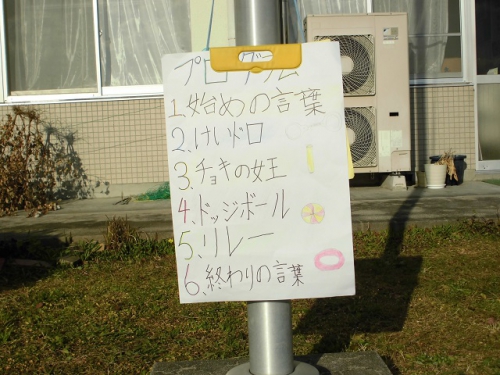 プログラム
1.始めの言葉
2.けいドロ
3.チョキの女王
4.ドッジボール
5.リレー
6.終わりの言葉